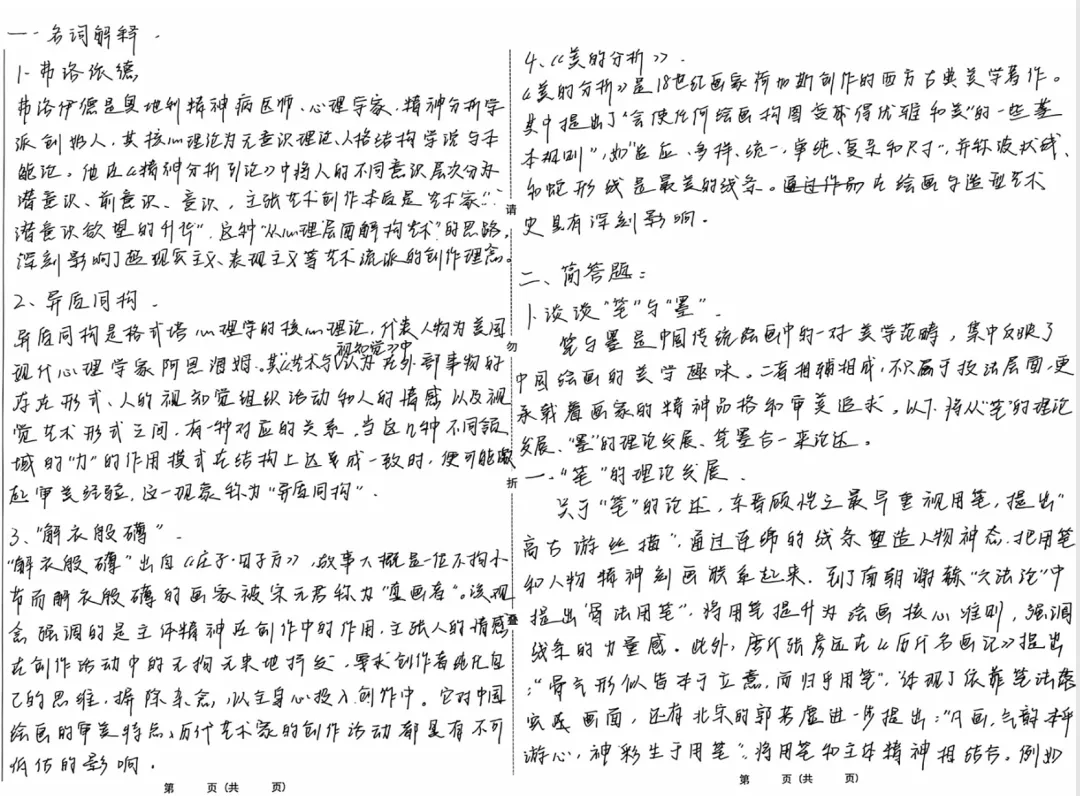 一. 名词解释.
1. 弗洛依德
弗洛伊德是奥地利精神病医师、心理学家、精神分析学
派创始人,其核心理论为无意识理论、人格结构学说与本
能论。他在《精神分析引论》中将人的不同意识层次分为
潜意识、前意识、意识,主张艺术创作本质是艺术家"
潜意识欲望的升华",这种"从心理层面解构艺术"的思路,
深刻影响了超现实主义、表现主义等艺术流派的创作理念。
2、异质同构.
异质同构是格式塔心理学的核心理论,代表人物为美国
现代心理学家阿恩海姆。其《艺术与视知觉》中认为在外部事物的
存在形式、人的视知觉组织活动和人的情感以及视
觉艺术形式之间,有一种对应的关系,当这几种不同领
域的"力"的作用模式在结构上达成一致时,便可能激
起审美经验,这一现象称为"异质同构".
3、"解衣般礴".
"解衣般礴"出自《庄子·田子方》,故事大概是一位不拘小
节而解衣般礴的画家被宋元君称为"真画者"。该观
念强调的是主体精神在创作中的作用,主张人的情感
在创作活动中的无拘无束地抒发,要求创作者纯化自
己的思维,摒除杂念,以全身心投入创作中。它对中国
绘画的审美特点、历代艺术家的创作活动都具有不可
低估的影响.
第 页(共 页)
请
勿
折
叠
4、《美的分析》.
《美的分析》是18世纪画家荷加斯创作的西方古典美学著作。
其中提出了"会使任何绘画构图变得优雅和美"的一些基
本规则",如"适应、多样、统一、单纯、复杂和尺寸",并称波状线、
和蛇形线是最美的线条。通过作品在绘画与造型艺术
史具有深刻影响。
二、简答题:
1. 谈谈"笔"与"墨".
笔与墨是中国传统绘画中的一对美学范畴,集中反映了
中国绘画的美学趣味。二者相辅相成,不只属于技法层面,更
承载着画家的精神品格和审美追求。以下将从"笔"的理论
发展、"墨"的理论发展、笔墨合一来论述。
一."笔"的理论发展.
关于"笔"的论述,东晋顾恺之最早重视用笔,提出"
高古游丝描",通过连绵的线条塑造人物神态,把用笔
和人物精神刻画联系起来.到了南朝谢赫"六法论"中
提出"骨法用笔",将用笔提升为绘画核心准则,强调
线条的力量感。此外,唐代张彦远在《历代名画记》提出
:"骨气形似皆本于立意,而归乎用笔",体现了依靠笔法落
实在画面,还有北宋的郭若虚进一步提出:"凡画,气韵本乎
游心,神彩生于用笔",将用笔和主体精神相结合。例如
第 页(共 页)